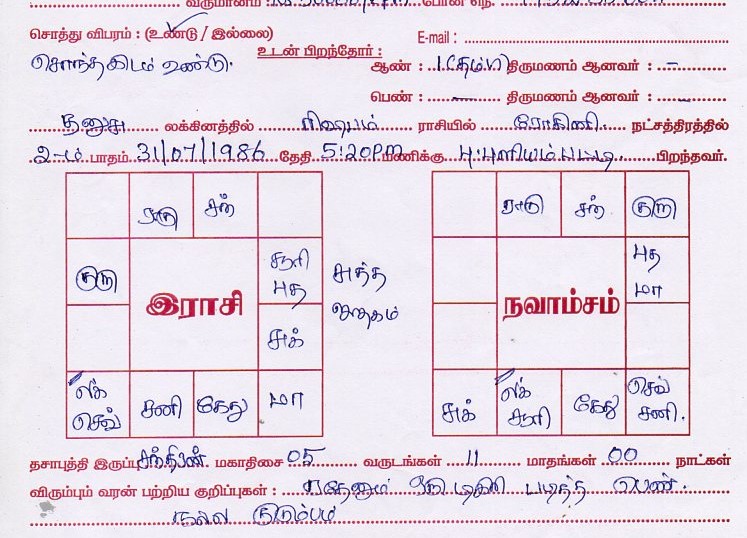 சொத்து விபரம் : (உண்டு / இல்லை) E-mail :
சொந்த இடம் உண்டு. உடன் பிறந்தோர் :
ஆண் : 1 (தம்பி) திருமணம் ஆனவர் : –
பெண் : – திருமணம் ஆனவர் : –
தனுசு லக்கினத்தில் ரிஷபம் ராசியில் ரோகினி நட்சத்திரத்தில்
2-ம் பாதம் 31/07/1986 தேதி 5:20PM மணிக்கு பு.புளியம்பட்டி பிறந்தவர்.
ராகு சந் ராகு சந் குரு
குரு சூரி புத சுத்த ஜாதகம் புத மா
இராசி சுக் நவாம்சம்
லக் செவ் சனி கேது மா சுக் லக் சூரி கேது செவ் சனி.
தசாபுத்தி இருப்பு சந்திரன் மகாதிசை 05 வருடங்கள் 11 மாதங்கள் 00 நாட்கள்
விரும்பும் வரன் பற்றிய குறிப்புகள் : ஏதேனும் ஒரு டிகிரி படித்த பெண்.
நல்ல குடும்பம்